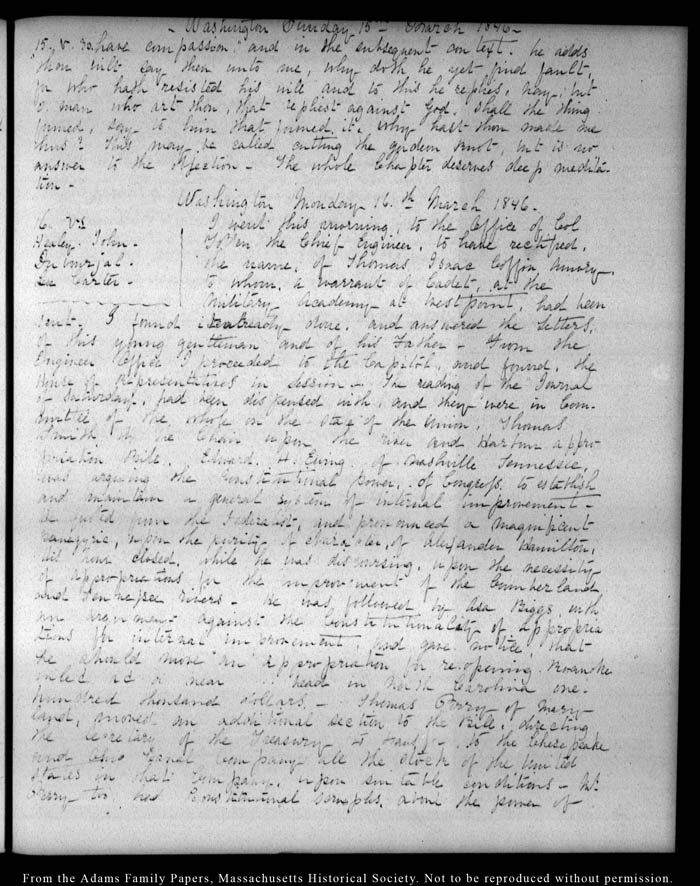 - Washington Sunday 15th March 1846-
15. v. 30. have compassion" and in the subsequent context. he adds
thou wilt say, then unto me, why doth he yet find fault,
for who hath resisted his will and to this he replies, nay, but
O. man who art thou, that repliest against God, shall the thing
formed, say to him that formed, it, why hast thou made me
thus? This may be called cutting the gordian knot, but is no
answer to the objection - The whole Chapter deserves deep medita-
tion -
Washington Monday 16.th March 1846.
16. V
Healy. John-
Carter-
I went this morning, to the Office of Col
Totten the Chief Engineer, to have rectified,
the name, of Thomas Isaac Coffin,
to whom, a warrant of Cadet, at the
Military Academy at West point, had been
sent- I found it already done, and answered the Letters,
of this young gentleman and of his Father - From the
Engineer Office I proceeded to the Capitol, and found, the
House of Representatives in session - The reading of the Journal
of Saturday, had been dispensed with, and they were in Com-
mittee, of the whole on the state of the Union, Thomas
Smith, in the Chair upon, the river and Harbour appro-
priation Bill, Edward. H. Ewing, of Nashville Tennessee,
was arguing the constitutional power, of Congress, to establish
and maintain a general system of internal improvement -
He quoted from the Federalist, and pronounced a magnificent
Panegyric, upon the purity of character, of Alexander Hamilton,
his hour closed, while he was discoursing, upon the necessity
of appropriations for the improvement of the Cumberland
and Tennessee rivers - He was followed by Asa Biggs, with
an argument against the Constitutionality of appropria
tions for internal improvement, and gave notice, that
he should move an appropriation for re.opening Roanoke
inlet at a near head in North Carolina one-
hundred thousand dollars, - Thomas Perry of Mary-
land, moved an additional section to the Bill, directing
the Secretary of the Treasury to to the Chesepeake
and Ohio Canal Company all the stock of the United
States in that Company, upon suitable conditions - Mr
Perry too, had Constitutional scruples, about the power of
From the Adams Family Papers, Massachusetts Historical Society. Not to be reproduced without permission.